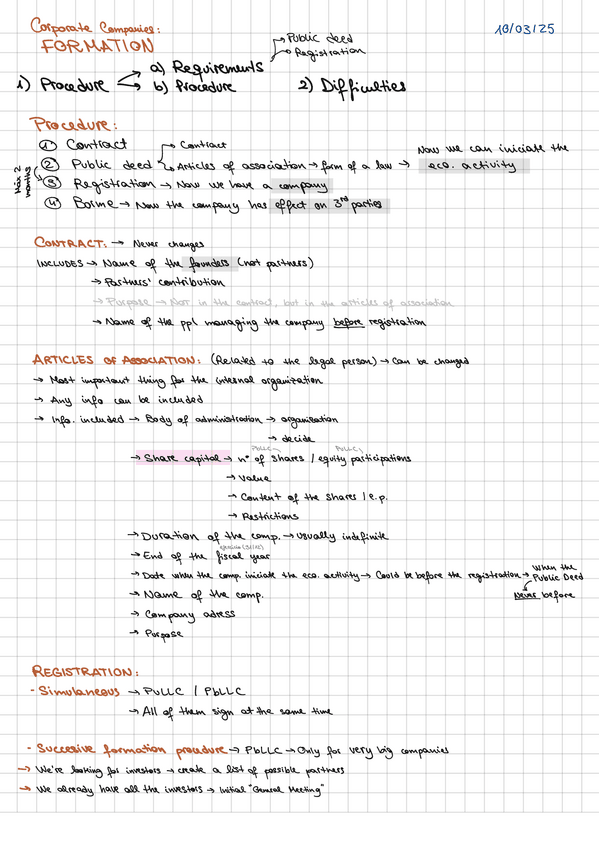 Corporate Companies:
FORMATION
10/03/25
→ Public deed
→ Registration
1) Procedure → a) Requirements
→ b) Procedure
2) Difficulties
Procedure:
① Contract
② Public deed → Contract
→ Articles of association → form of a law → Now we can iniciate the eco. activity
Max 2 months
③ Registration → Now we have a company
④ Borme → Now the company has effect on 3rd parties
CONTRACT: → Never changes
INCLUDES → Name of the founders (not partners)
→ Partners' contribution
→ Purpose → NOT in the contract, but in the articles of association
→ Name of the ppl managing the company before registration
ARTICLES OF ASSOCIATION: (Related to the legal person) → Can be changed
→ Most important thing for the internal organization
→ Any info can be included
→ Info. included → Body of administration → organisation
→ decide
→ Share capital → nº of shares / equity participations
PbLLC PvLLC
→ Value
→ Content of the shares / e.p.
→ Restrictions
→ Duration of the comp. → usually indefinite
→ End of the fiscal year
(31/12)
→ Date when the comp. iniciate the eco. activity → Could be before the registration → When the Public Deed
Never before
→ Name of the comp.
→ Company adress
→ Purpose
REGISTRATION:
- Simultaneous → PvLLC / PbLLC
→ All of them sign at the same time
- Succesive formation procedure → PbLLC → Only for very big companies
→ We're looking for investors → create a list of possible partners
→ We already have all the investors → Initial "General Meeting"